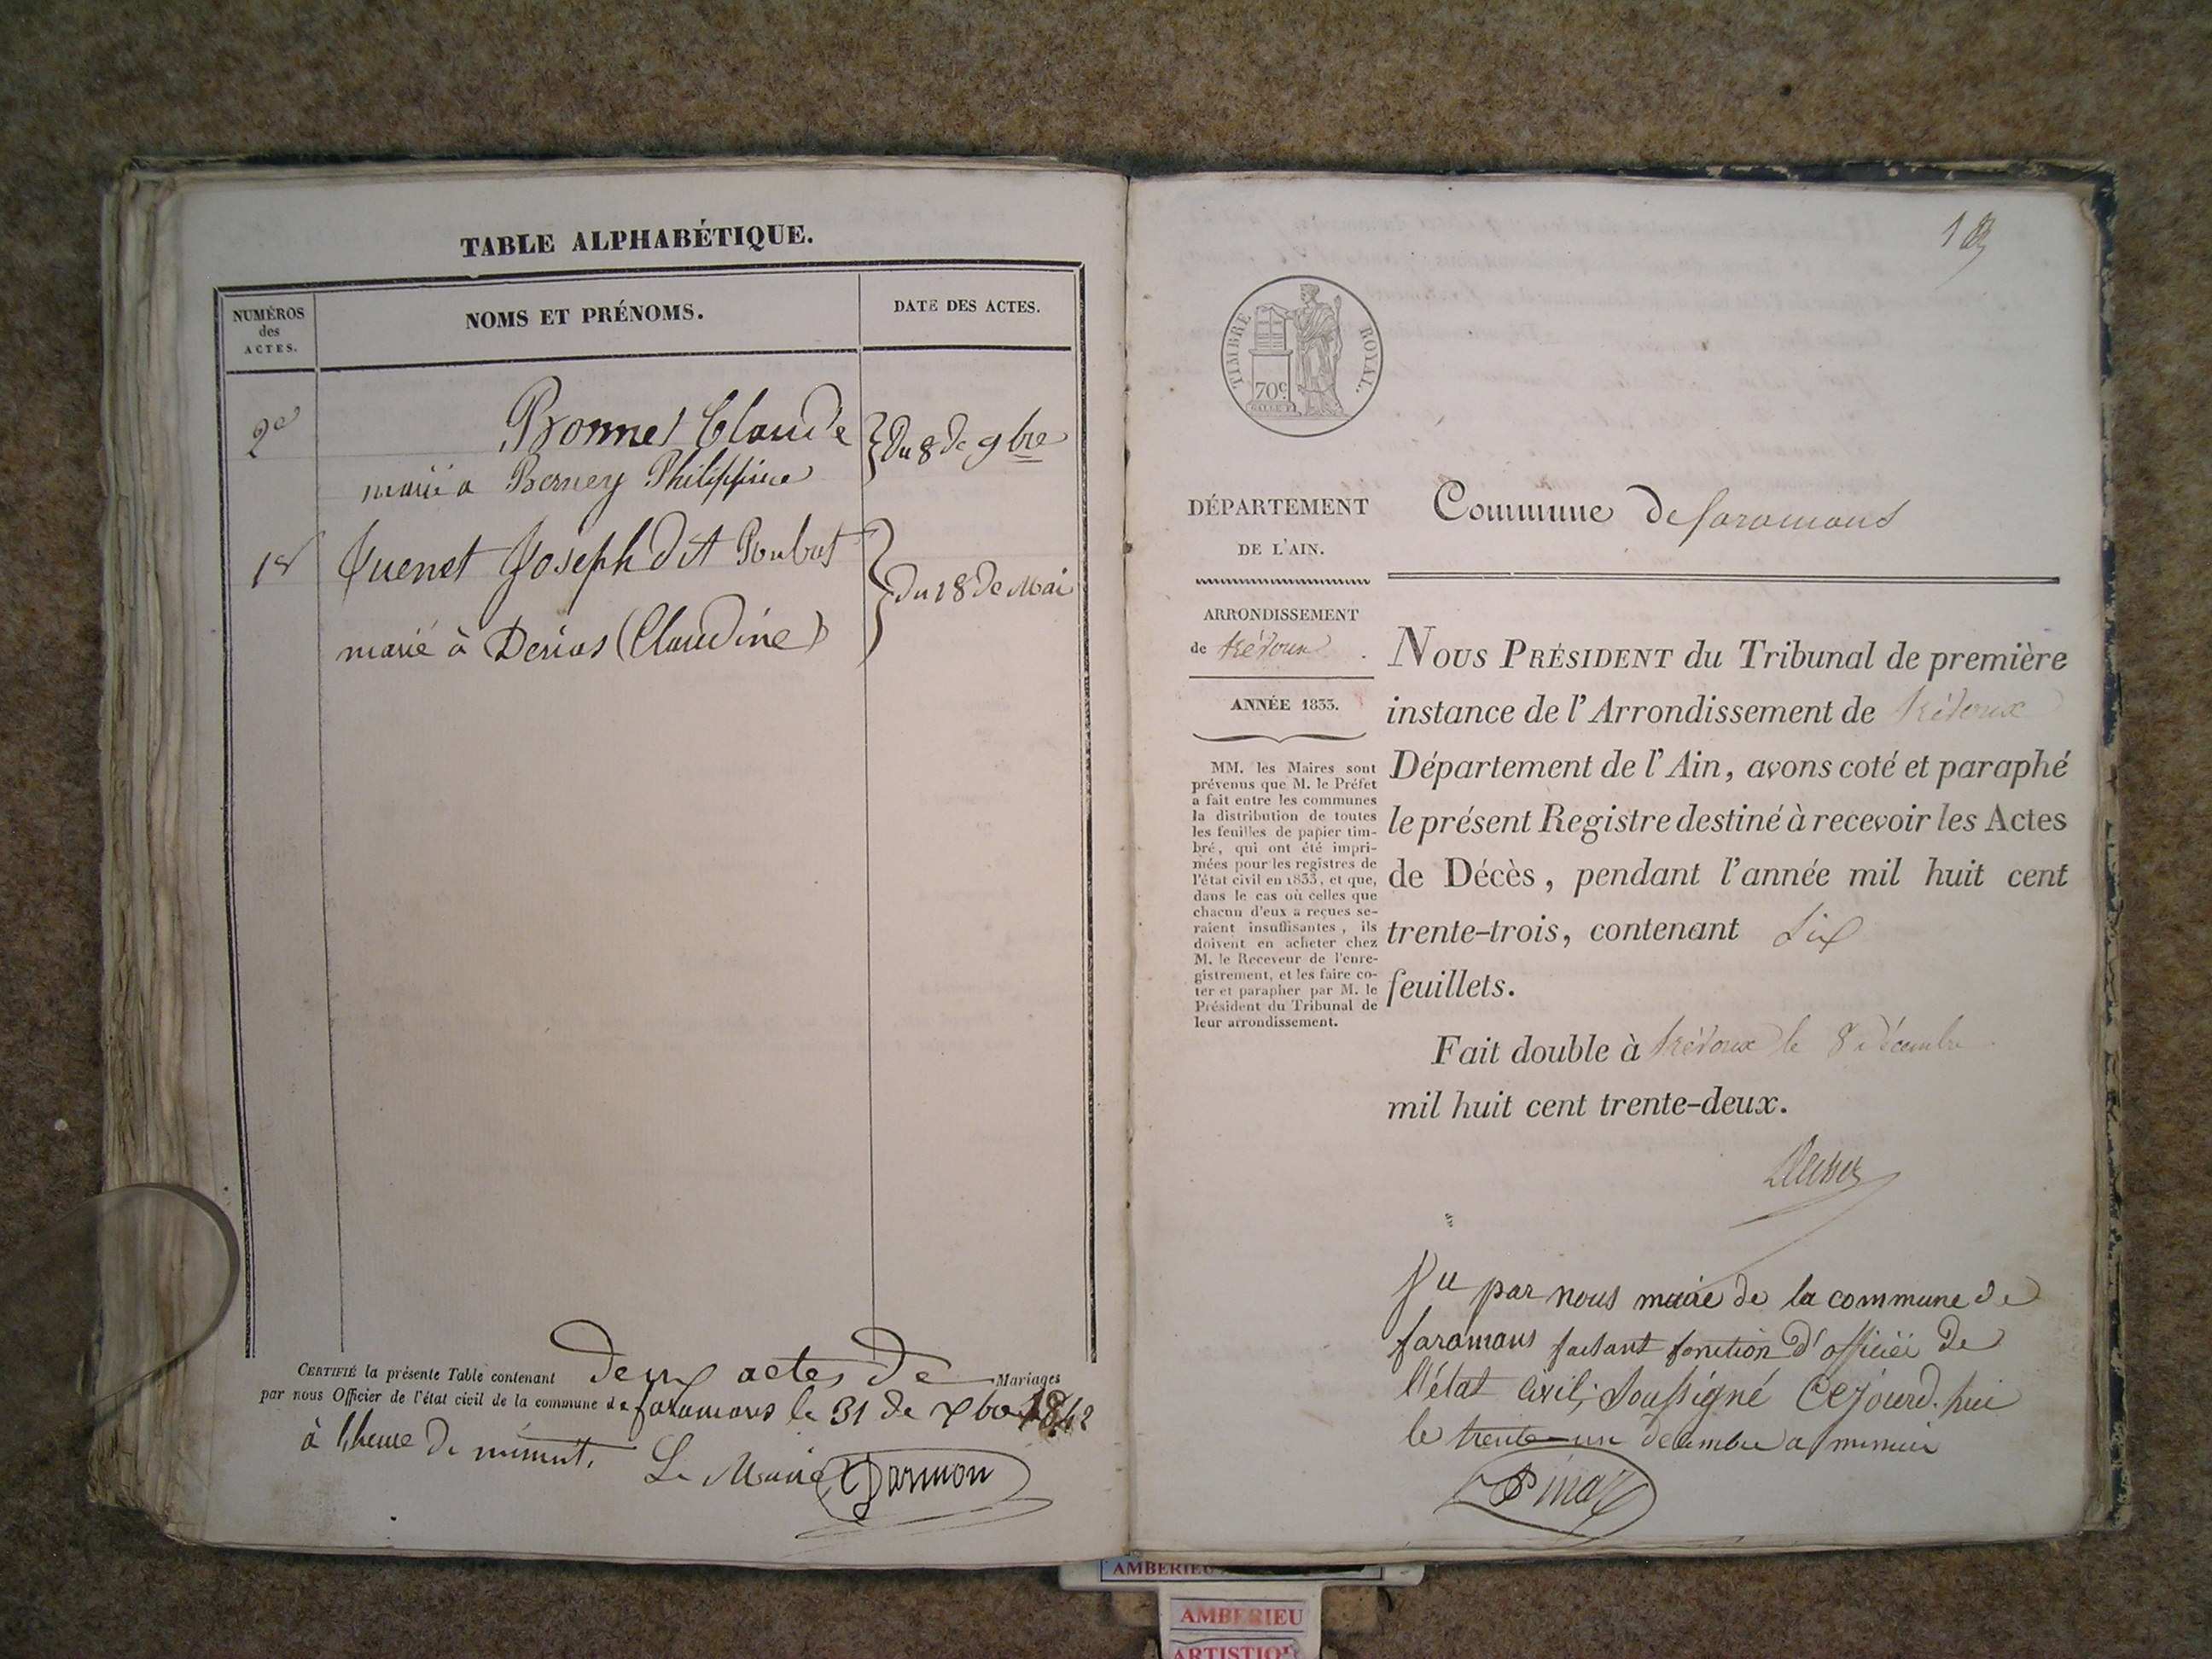 TABLE ALPHABÉTIQUE.
NUMÉROS
des
ACTES.
NOMS ET PRÉNOMS.
DATE DES ACTES.
2e
Bonnet Claude
Du 8 de 9bre
marié a Berney Philippine
1er
Joseph dit
Du 18 de Mai
marié à (Claudine)
CERTIFIÉ la présente Table contenant deux actes de Mariages
par nous Officier de l'état civil de la commune de faramans le 31 de Xbre
à l'heure de minuit. Le Maire
TIMBRE ROYAL.
70c
DÉPARTEMENT
DE L'AIN.
ARRONDISSEMENT
de trévoux
ANNÉE 1833.
MM. les Maires sont
prévenus que M. le Préfet
a fait entre les communes
la distribution de toutes
les feuilles de papier tim-
bré, qui ont été impri-
mées pour les registres de
l'état civil en 1833, et que,
dans le cas où celles que
chacun d'eux a reçues se-
raient insuffisantes, ils
doivent en acheter chez
M. le Receveur de l'enre-
gistrement, et les faire co-
ter et parapher par M. le
Président du Tribunal de
leur arrondissement.
Commune de faramans
NOUS PRÉSIDENT du Tribunal de première
instance de l'Arrondissement de trévoux
Département de l'Ain, avons coté et paraphé
le présent Registre destiné à recevoir les Actes
de Décès, pendant l'année mil huit cent
trente-trois, contenant Six
feuillets.
Fait double à trévoux le 8 décembre
mil huit cent trente-deux.
Vu par nous maire de la commune de
faramans faisant fonction d'officier de
l'état civil, Soussigné Cejourd'hui
le trente-un décembre a minuit
AMBERIEU
AMBERIEU
ARTISTIQ